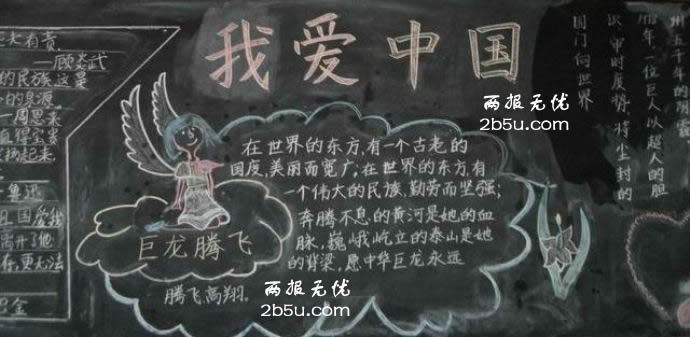 我爱中国
天有责
——顾炎武
的民族,这是
的泉源
——周恩来
鲁迅
国爱我
离开了他
存,更无法
巴金
巨龙腾飞
在世界的东方,有一个古老的
国度,美丽而宽广;在世界的东方,有
一个伟大的民族,勤劳而坚强;
奔腾不息的黄河是她的血
脉,巍峨屹立的泰山是她
的背梁,愿中华巨龙永远
腾飞高翔。
州五千年的
年,一位巨人以超人的胆
识,审时度势,将尘封的
国门向世界
两报无忧
2b5u.com
两报无忧
2b5u.com